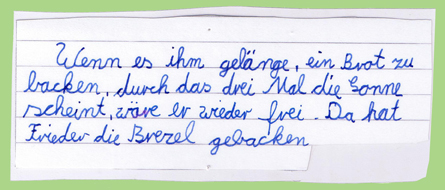 Wenn es ihm gelänge, ein Brot zu
backen, durch das drei Mal die Sonne
scheint, wäre er wieder frei. Da hat
Frieder die Brezel gebacken